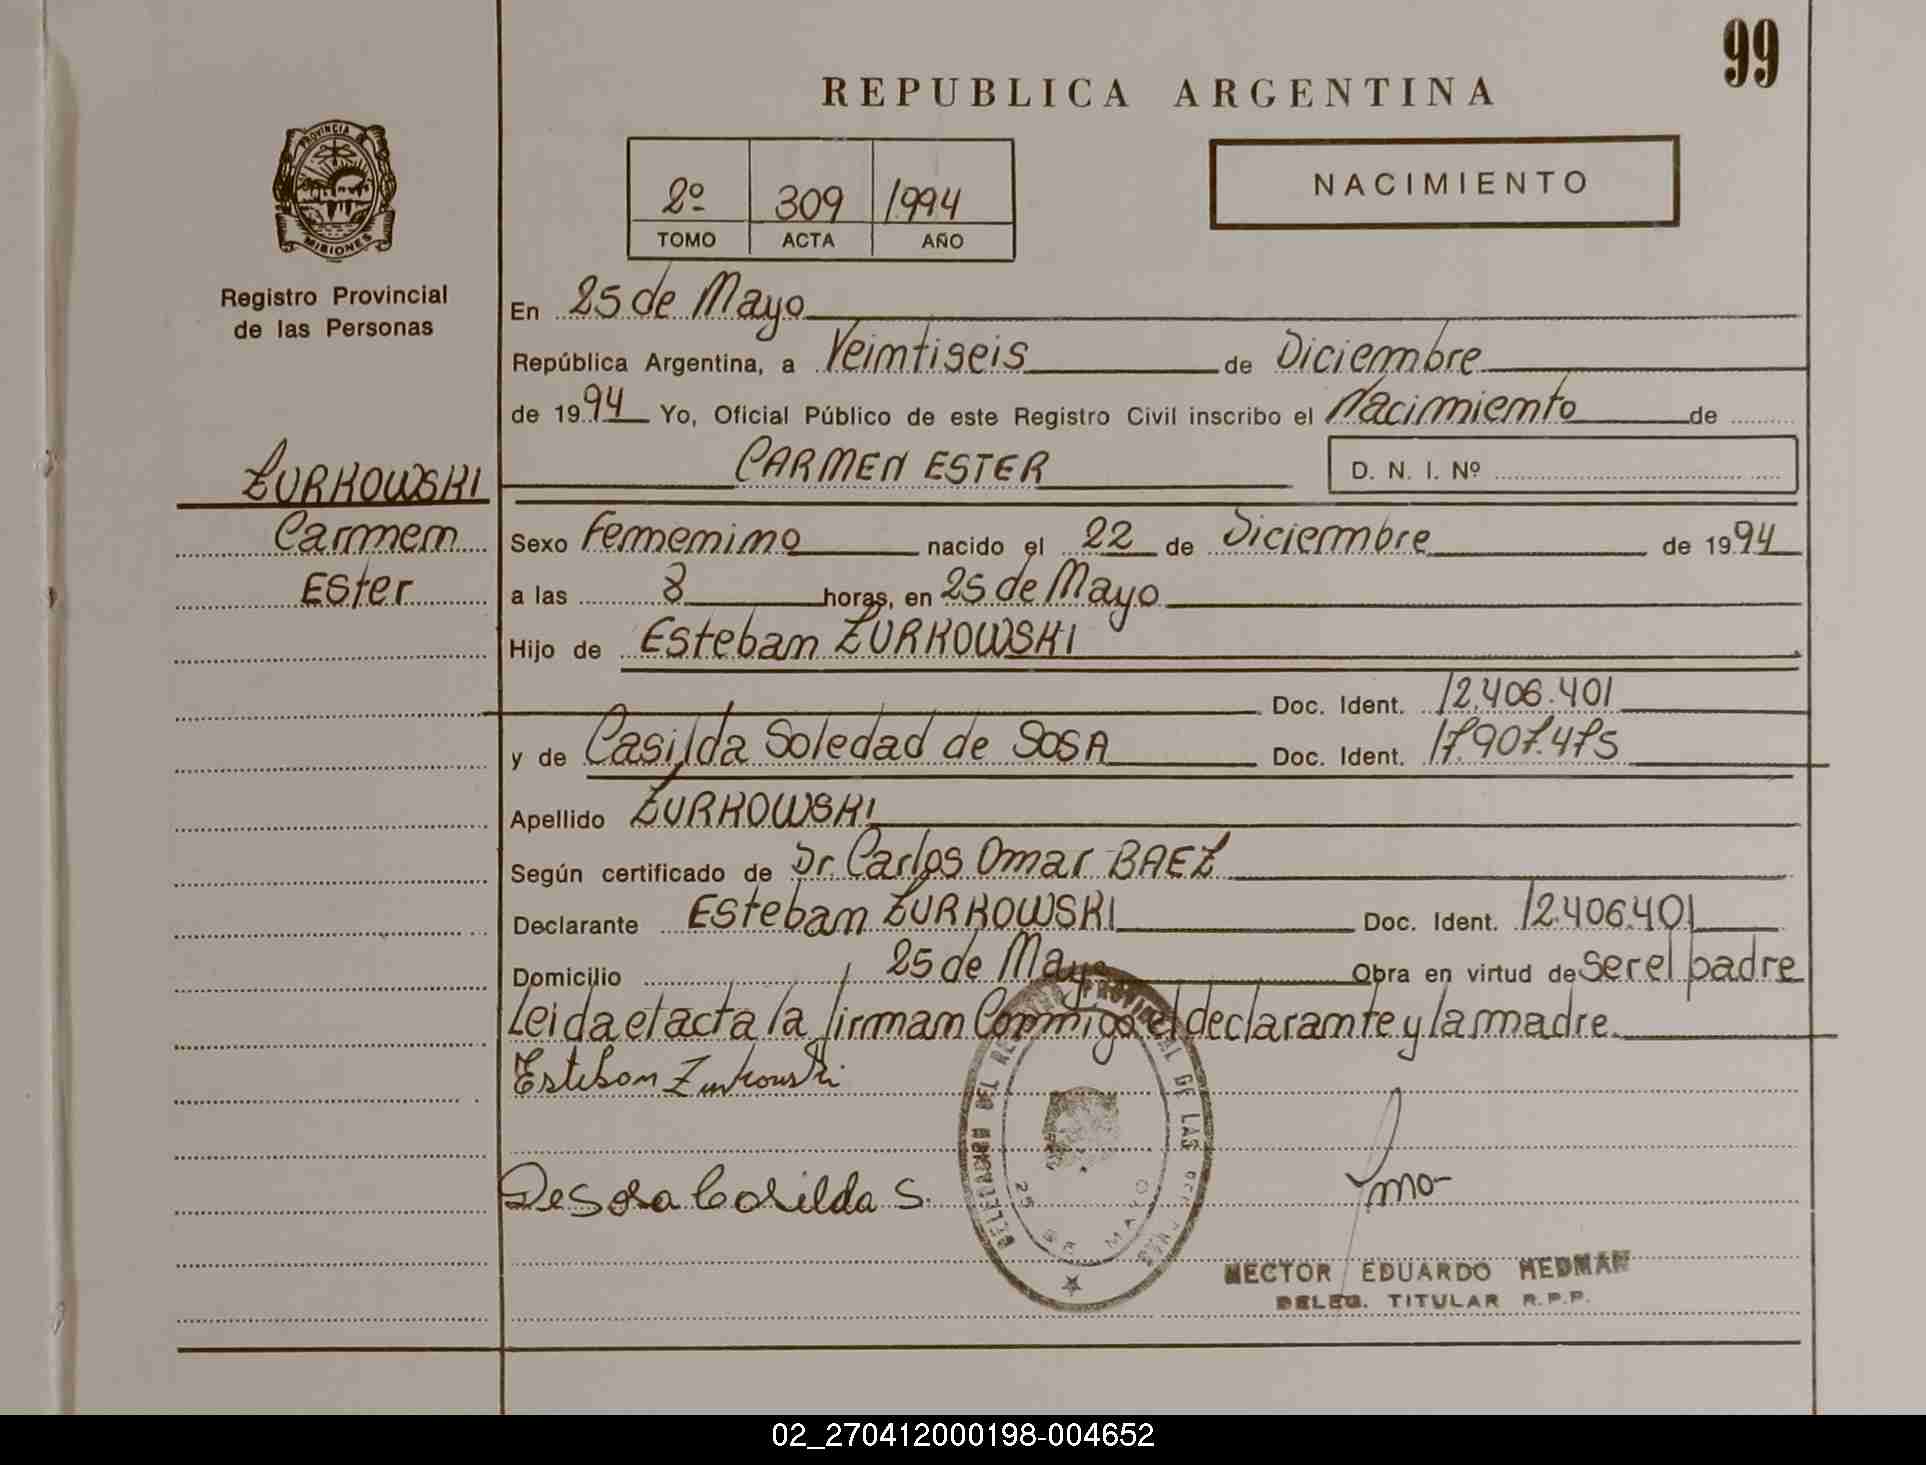 99
REPUBLICA ARGENTINA
2º 309 1994
TOMO ACTA AÑO
NACIMIENTO
PROVINCIA DE
MISIONES
Registro Provincial
de las Personas
En 25 de Mayo
República Argentina, a Veintiseis de Diciembre
de 1994 Yo, Oficial Público de este Registro Civil inscribo el Nacimiento de
ZURKOWSKI CARMEN ESTER D. N. I. Nº
Carmen Sexo Femenino nacido el 22 de Diciembre de 1994
Ester a las 8 horas, en 25 de Mayo
Hijo de Esteban ZURKOWSKI
Doc. Ident. 12.406.401
y de Casilda Soledad de SOSA Doc. Ident. 17.907.475
Apellido ZURKOWSKI
Según certificado de Dr. Carlos Omar BAEZ
Declarante Esteban ZURKOWSKI Doc. Ident. 12.406.401
Domicilio 25 de Mayo Obra en virtud de ser el padre
Leida el acta la firman Conmigo el declarante y la madre
Esteban Zurkowski
DELEGACION DEL REGISTRO PROVINCIAL DE LAS
25 DE MAYO
De Sosa Casilda S.
HECTOR EDUARDO HEDMAN
DELEG. TITULAR R.P.P.
02_270412000198-004652